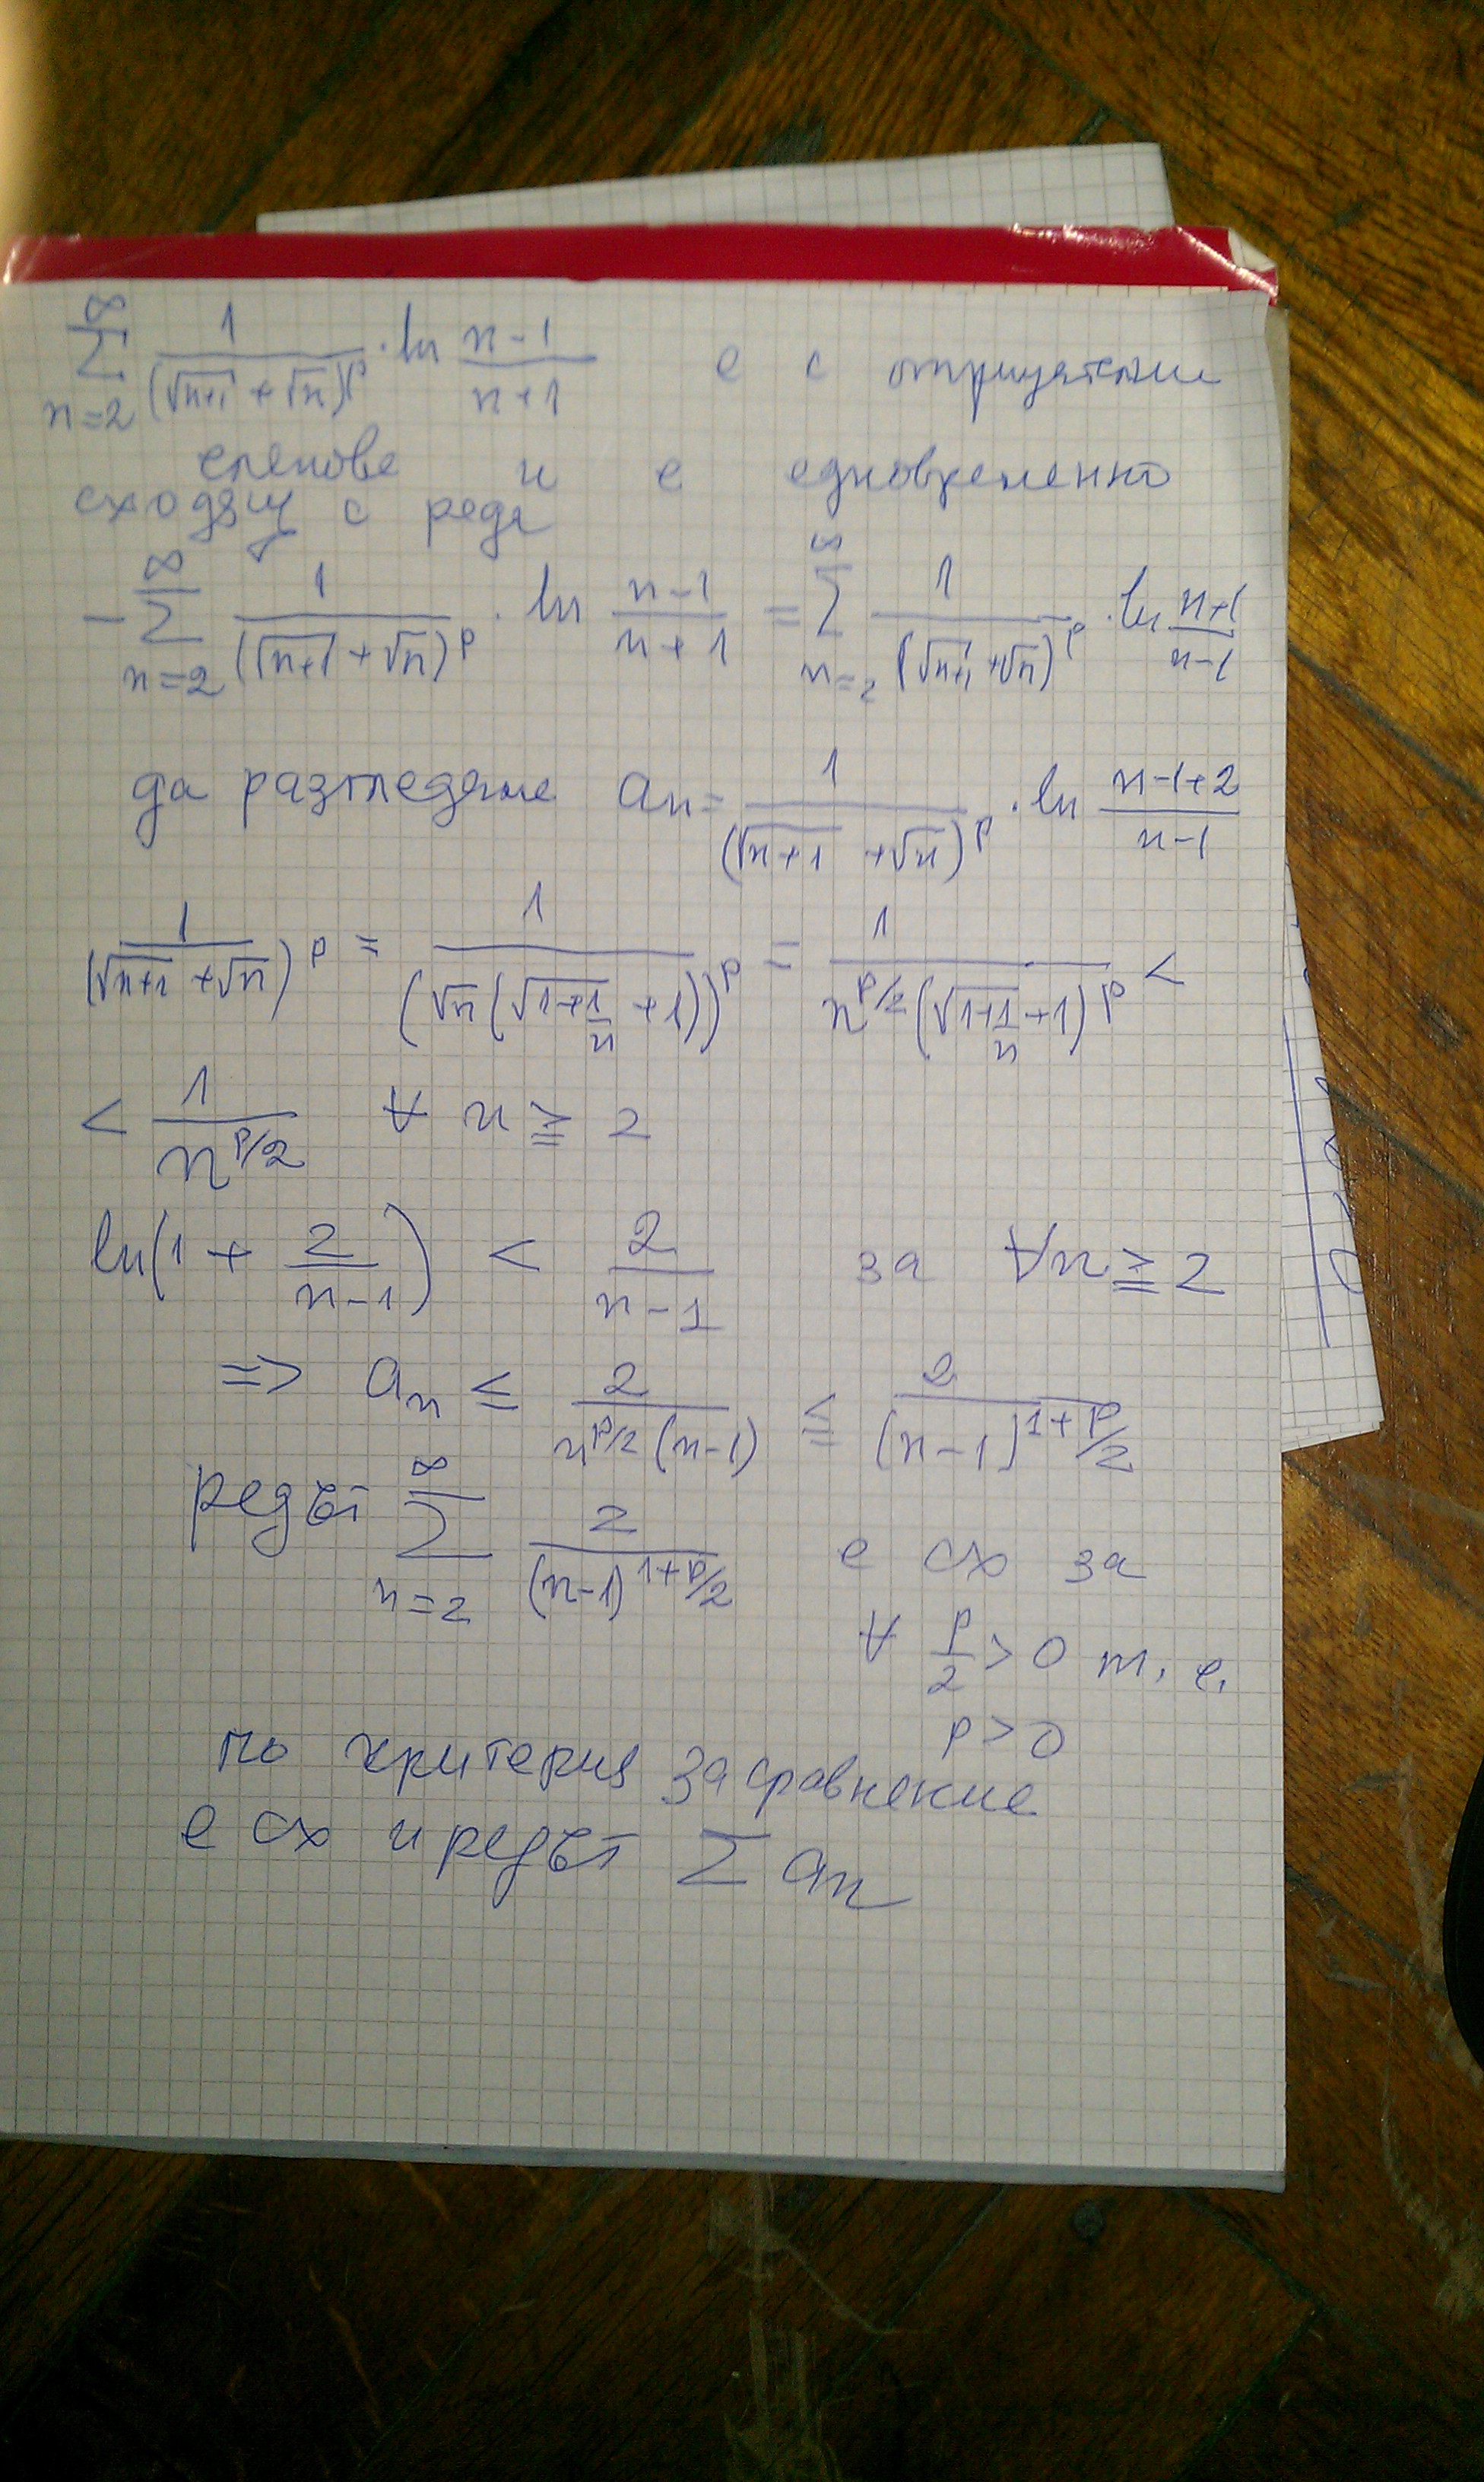 ∞
Σ 1/(√n+1 + √n)^p · ln (n-1)/(n+1) е с отрицателни
n=2
членове и е едновременно
сходящ с реда
- ∞Σn=2 1/(√n+1 + √n)^p · ln (n-1)/(n+1) = ∞Σn=2 1/(√n+1 + √n)^p · ln (n+1)/(n-1)
да разгледаме an = 1/(√n+1 + √n)^p · ln (n-1+2)/(n-1)
1/(√n+1 + √n)^p = 1/(√n(√1+1/n + 1))^p = 1/n^p/2(√1+1/n + 1)^p <
< 1/n^p/2 ∀ n ≧ 2
ln(1 + 2/(n-1)) < 2/(n-1) за ∀n ≧ 2
=> an ≤ 2/n^p/2(n-1) ≦ 2/(n-1)^1+p/2
редът ∞Σn=2 2/(n-1)^1+p/2 е сх за
∀ p/2 > 0 т. е.
p > 0
по критерия за сравнение
е сх и редът Σ an